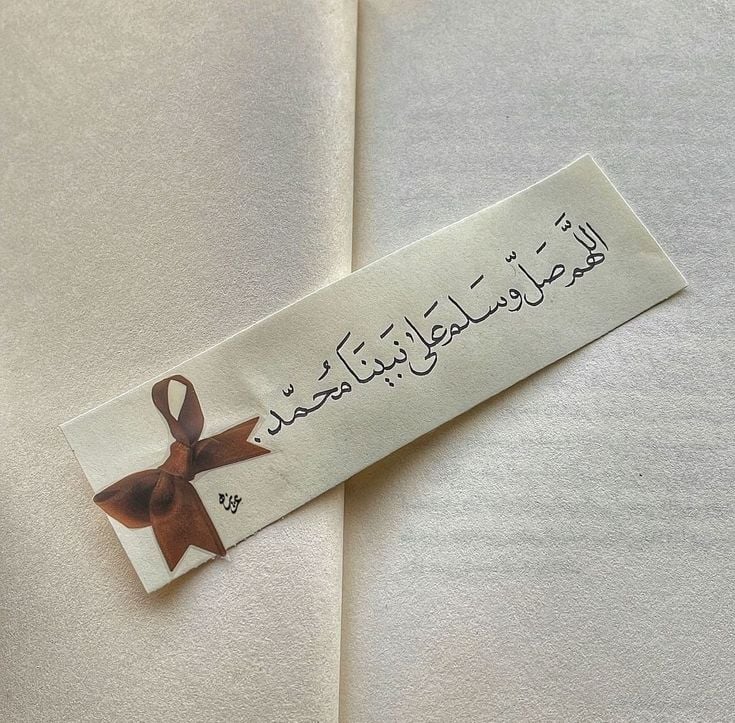 اللَّهم صَلِّ وسَلم عَلىٰ نَبينَا مُحمّد.